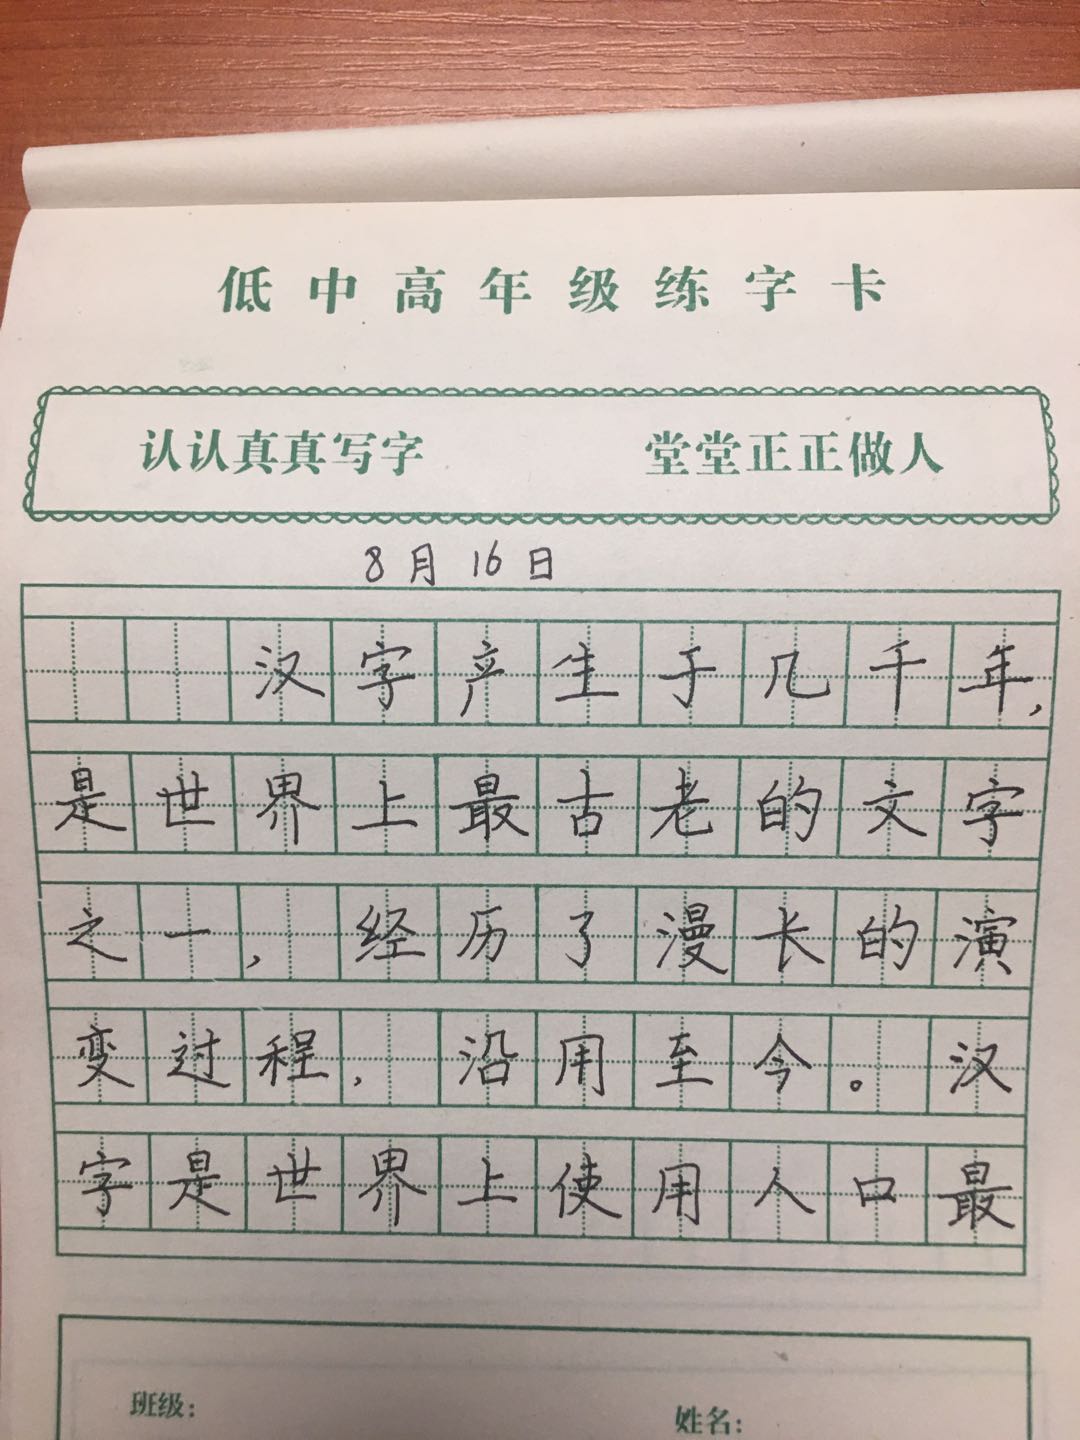 低中高年级练字卡
认认真真写字 堂堂正正做人
8月16日
汉字产生于几千年,
是世界上最古老的文字
之一,经历了漫长的演
变过程,沿用至今。汉
字是世界上使用人口最
班级: 姓名: